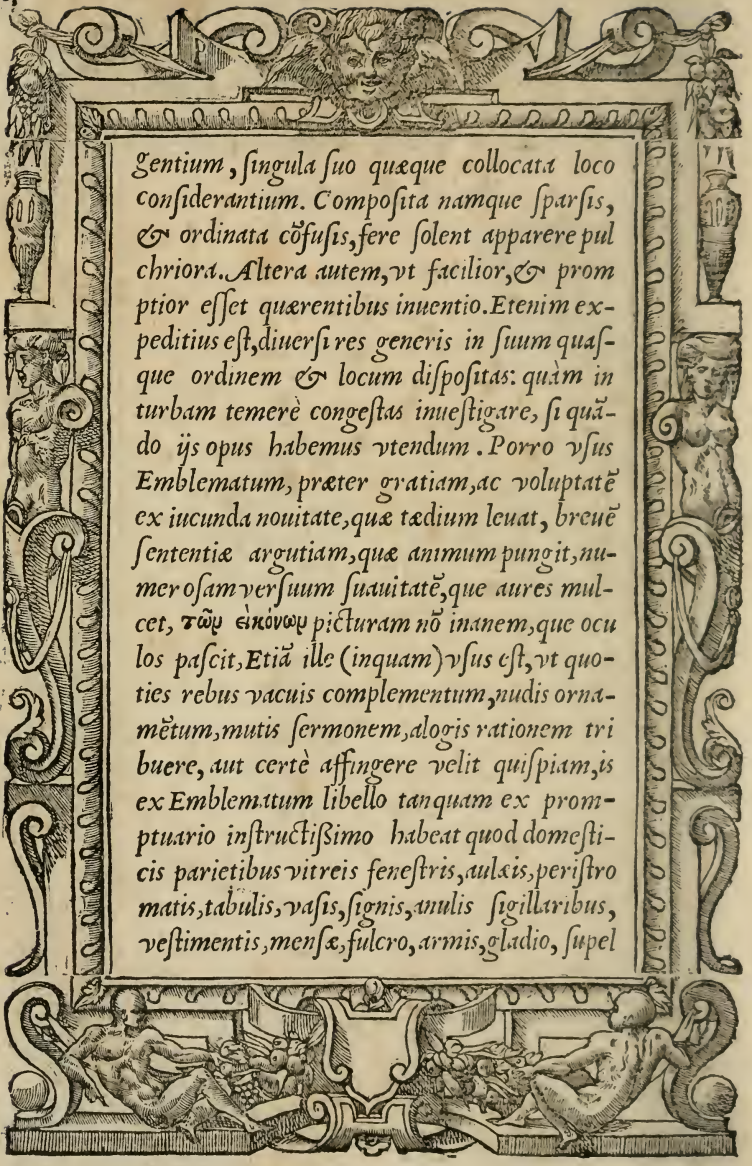 P V
gentium, ſingula ſuo quæque collocata loco
conſiderantium. Compoſita namque ſparſis,
& ordinata cõfuſis, fere ſolent apparere pul
chriora. Altera autem, vt facilior, & prom
ptior eſſet quærentibus inuentio. Etenim ex-
peditius eſt, diuerſi res generis in ſuum quaſ-
que ordinem & locum diſpoſitas: quàm in
turbam temerè congeſtas inueſtigare, ſi quã-
do ijs opus habemus vtendum. Porro vſus
Emblematum, præter gratiam, ac voluptatẽ
ex iucunda nouitate, quæ tædium leuat, breuẽ
ſententiæ argutiam, quæ animum pungit, nu-
meroſam verſuum ſuauitatẽ, que aures mul-
cet, τῶν εἰκόνων picturam nõ inanem, que ocu
los paſcit, Etiã ille (inquam) vſus eſt, vt quo-
ties rebus vacuis complementum, nudis orna-
mẽtum, mutis ſermonem, alogis rationem tri
buere, aut certè affingere velit quiſpiam, is
ex Emblematum libello tanquam ex prom-
ptuario inſtructißimo habeat quod domeſti-
cis parietibus vitreis feneſtris, aulæis, periſtro
matis, tabulis, vaſis, ſignis, anulis ſigillaribus,
veſtimentis, menſæ, fulcro, armis, gladio, ſupel